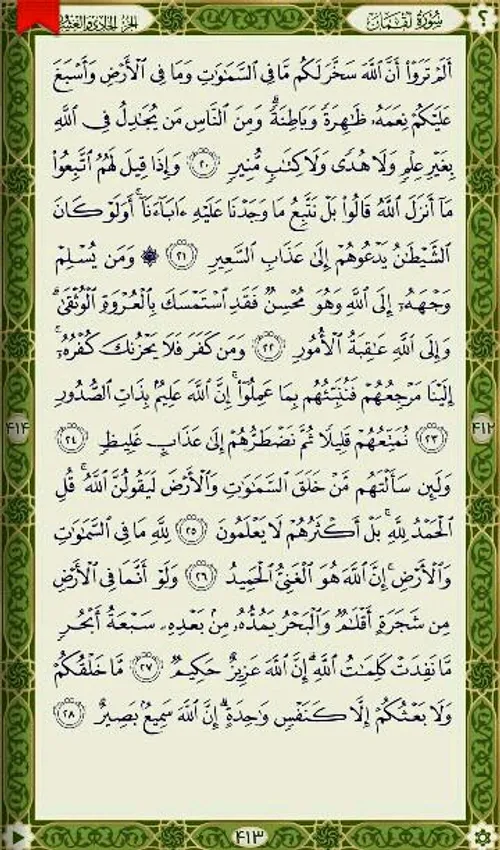 ؟
سُورَةُ لُقۡمَان
الجزء الحادي والعشرون
أَلَمۡ تَرَوۡاْ أَنَّ ٱللَّهَ سَخَّرَ لَكُم مَّا فِي ٱلسَّمَٰوَٰتِ وَمَا فِي ٱلۡأَرۡضِ وَأَسۡبَغَ
عَلَيۡكُمۡ نِعَمَهُۥ ظَٰهِرَةٗ وَبَاطِنَةٗۗ وَمِنَ ٱلنَّاسِ مَن يُجَٰدِلُ فِي ٱللَّهِ
بِغَيۡرِ عِلۡمٖ وَلَا هُدٗى وَلَا كِتَٰبٖ مُّنِيرٖ ٢٠ وَإِذَا قِيلَ لَهُمُ ٱتَّبِعُواْ
مَآ أَنزَلَ ٱللَّهُ قَالُواْ بَلۡ نَتَّبِعُ مَا وَجَدۡنَا عَلَيۡهِ ءَابَآءَنَآۚ أَوَلَوۡ كَانَ
ٱلشَّيۡطَٰنُ يَدۡعُوهُمۡ إِلَىٰ عَذَابِ ٱلسَّعِيرِ ٢١ ۞ وَمَن يُسۡلِمۡ
وَجۡهَهُۥٓ إِلَى ٱللَّهِ وَهُوَ مُحۡسِنٞ فَقَدِ ٱسۡتَمۡسَكَ بِٱلۡعُرۡوَةِ ٱلۡوُثۡقَىٰۗ
وَإِلَى ٱللَّهِ عَٰقِبَةُ ٱلۡأُمُورِ ٢٢ وَمَن كَفَرَ فَلَا يَحۡزُنكَ كُفۡرُهُۥٓۚ
إِلَيۡنَا مَرۡجِعُهُمۡ فَنُنَبِّئُهُم بِمَا عَمِلُوٓاْۚ إِنَّ ٱللَّهَ عَلِيمُۢ بِذَاتِ ٱلصُّدُورِ
٢٣ نُمَتِّعُهُمۡ قَلِيلٗا ثُمَّ نَضۡطَرُّهُمۡ إِلَىٰ عَذَابٍ غَلِيظٖ ٢٤
وَلَئِن سَأَلۡتَهُم مَّنۡ خَلَقَ ٱلسَّمَٰوَٰتِ وَٱلۡأَرۡضَ لَيَقُولُنَّ ٱللَّهُۚ قُلِ
ٱلۡحَمۡدُ لِلَّهِۚ بَلۡ أَكۡثَرُهُمۡ لَا يَعۡلَمُونَ ٢٥ لِلَّهِ مَا فِي ٱلسَّمَٰوَٰتِ
وَٱلۡأَرۡضِۚ إِنَّ ٱللَّهَ هُوَ ٱلۡغَنِيُّ ٱلۡحَمِيدُ ٢٦ وَلَوۡ أَنَّمَا فِي ٱلۡأَرۡضِ
مِن شَجَرَةٍ أَقۡلَٰمٞ وَٱلۡبَحۡرُ يَمُدُّهُۥ مِنۢ بَعۡدِهِۦ سَبۡعَةُ أَبۡحُرٖ
مَّا نَفِدَتۡ كَلِمَٰتُ ٱللَّهِۚ إِنَّ ٱللَّهَ عَزِيزٌ حَكِيمٞ ٢٧ مَّا خَلۡقُكُمۡ
وَلَا بَعۡثُكُمۡ إِلَّا كَنَفۡسٖ وَٰحِدَةٍۚ إِنَّ ٱللَّهَ سَمِيعُۢ بَصِيرٌ ٢٨
٤١٢
٤١٤
٤١٣